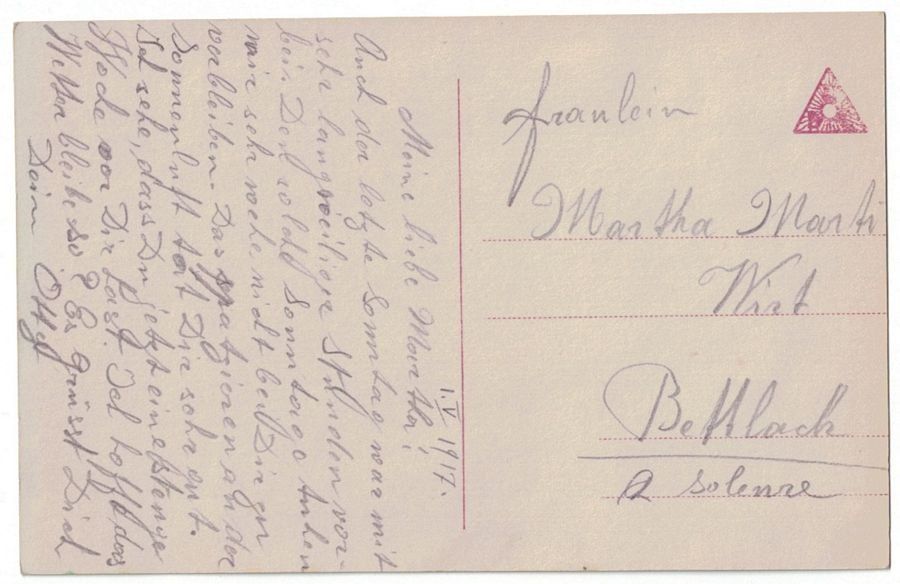 1. V 1917.
Meine liebe Martha!
Auch der letzte Sonntag war mit
sehr langweilige Stunden vor-
bei. Den solch Sonntage tuhen
mir sehr wehe, nicht bei Dir zu
verbleiben. Das spatzieren an der
Sonnenluft tat Dir sehr gut.
Ich sehe, dass Du jetzt eine strenge
Woche vor Dir hast. Ich hoff das
Wetter bleibe so? Es grüsst Dich
Dein
Fraulein
Martha Marti
Wirt
Bettlach
a Solenre